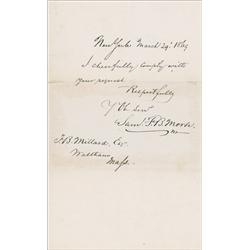 New York March 29. 1869
I cheerfully comply with
your request
Respectfully
Yr Ob Serv
Saml. F. B. Morse.
F. B. Millard, Esq.
Waltham,
Mass.